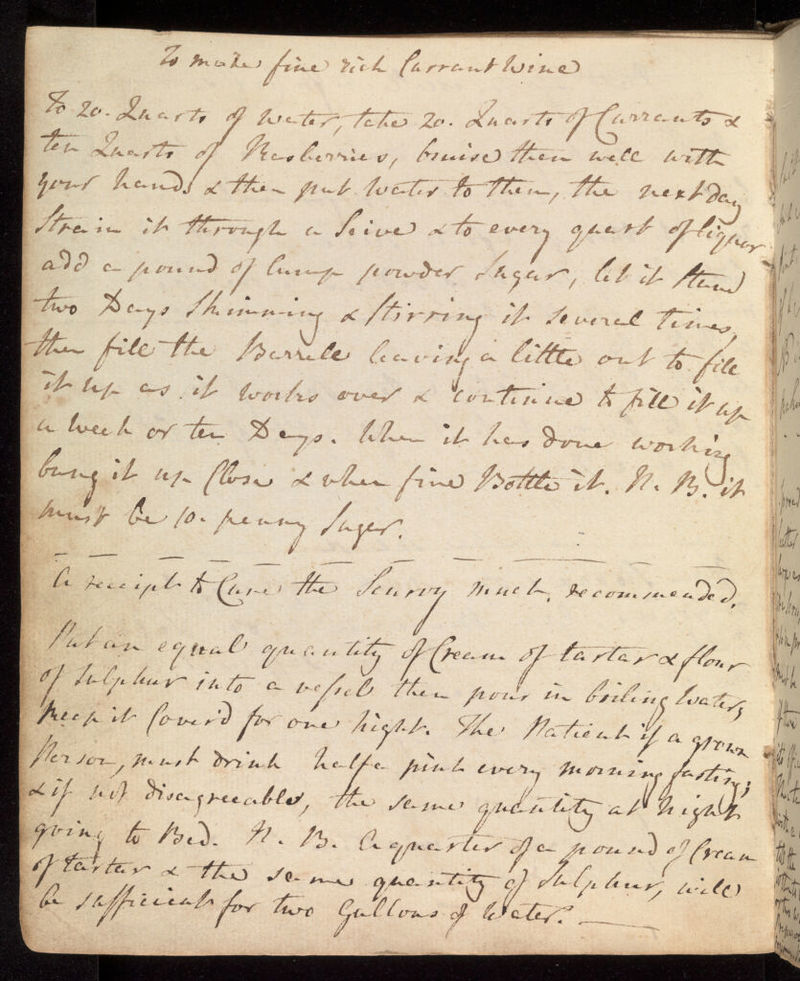 To make fine rich Currant Wine
To 20. Quarts of water, take 20. Quarts of Currants &
ten Quarts of Rasberries, bruise them well with
your hands & then put Water to them, the next day
Strain it through a Seive & to every quart of liquor
add a pound of lump powder Sugar, let it Stand
two Days Skimming & Stirring it several times,
then fill the Barrell leaving a little out to fill
it up as it works over & continue to fill it up
a week or ten Days. When it has done working
bung it up Close & when fine Bottle it. N. B. it
must be 10. penny Sugar.
A receipt to Cure the Scurvy much, recommended.
Put an equal quantity of Cream of tartar & flour
of Sulphur into a vessel then pour in boiling Water;
keep it Cover'd for one night. The Patient if a grown
Person, must drink half a pint every morning fasting;
& if not disagreeable, the same quantity at Night
going to Bed. N. B. A quarter of a pound of Cream
of tartar & the same quantity of Sulphur, will
be sufficient for two Gallons of Water.